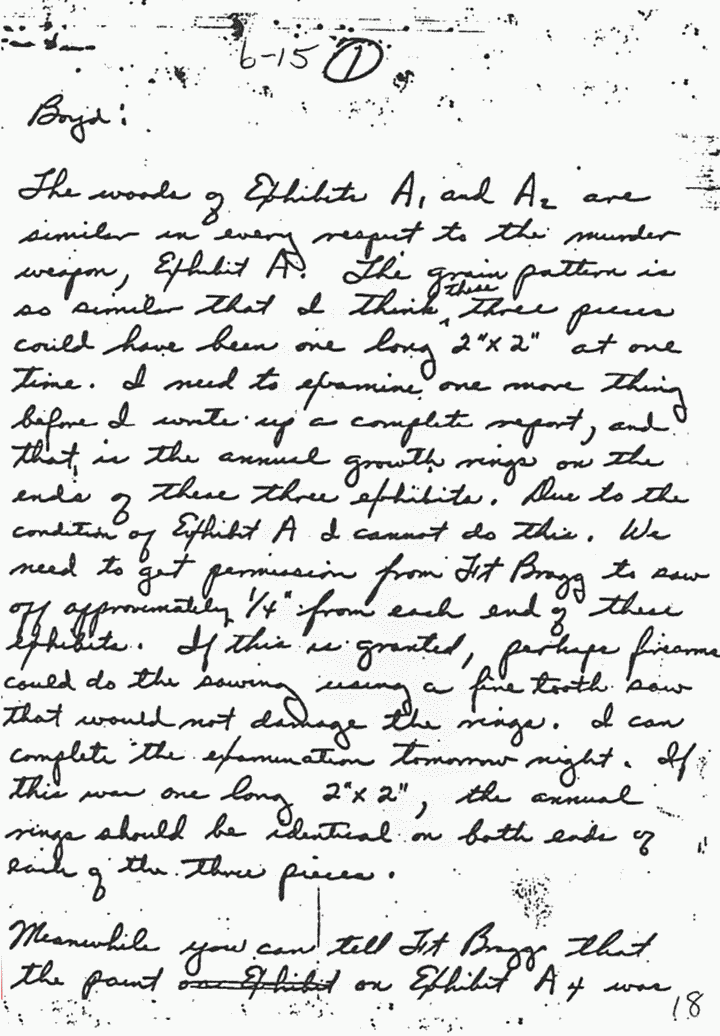 6-15 1
Boyd:
The woods of Exhibits A1 and A2 are
similar in every respect to the murder
weapon, Exhibit A. The grain pattern is
these
so similar that I think three pieces
could have been one long 2"x 2" at one
time. I need to examine one more thing
before I write up a complete report, and
that is the annual growth rings on the
ends of these three exhibits. Due to the
condition of Exhibit A I cannot do this. We
need to get permission from Ft Bragg to saw
off approximately 1/4" from each end of these
exhibits. If this is granted, perhaps firearms
could do the sawing using a fine tooth saw
that would not damage the rings. I can
complete the examination tomorrow night. If
this was one long 2"x 2", the annual
rings should be identical on both ends of
each of the three pieces.
Meanwhile you can tell Ft Bragg that
the paint one Exhibit on Exhibit A4 was
18